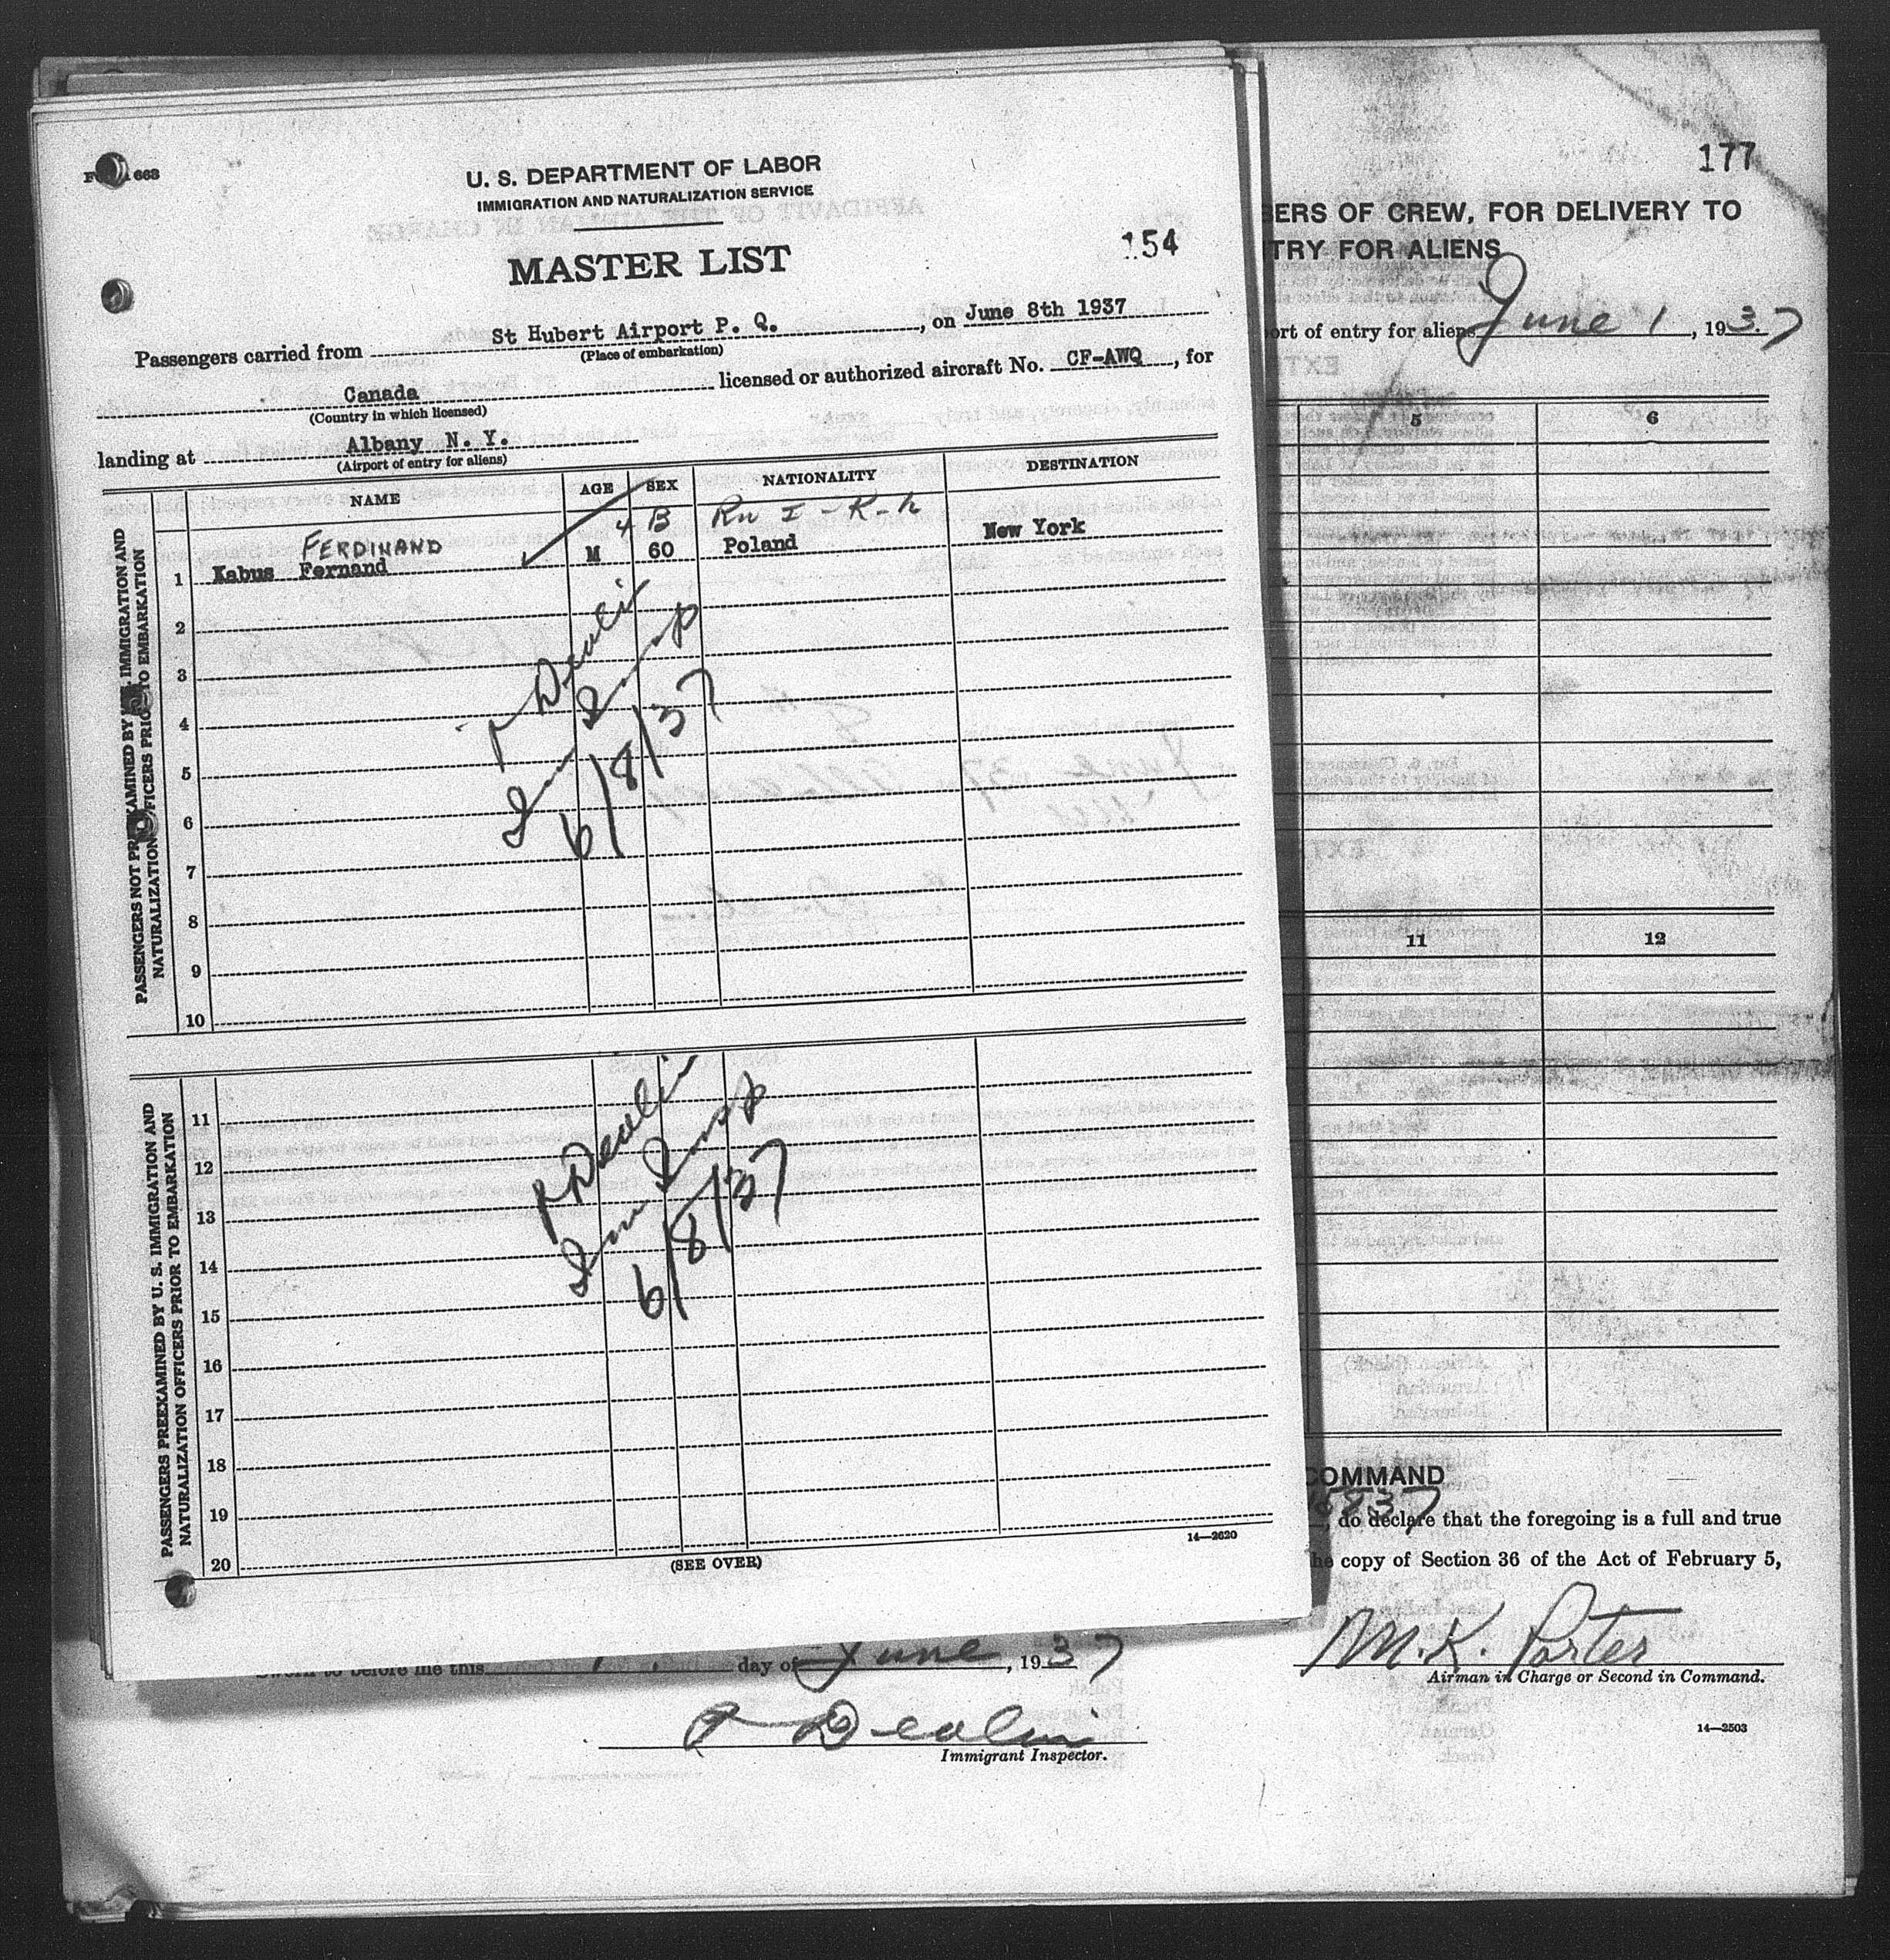 663
U. S. DEPARTMENT OF LABOR
IMMIGRATION AND NATURALIZATION SERVICE
MASTER LIST
154
Passengers carried from St Hubert Airport P. Q., on June 8th 1937
(Place of embarkation)
Canada licensed or authorized aircraft No. CF-AWQ, for
(Country in which licensed)
landing at Albany N. Y.
(Airport of entry for aliens)
NAME AGE SEX NATIONALITY DESTINATION
4 B
FERDINAND
1 Kabus Fernand M 60 Poland New York
2
3
4
5
6
7
8
9
10
6/8/37
PASSENGERS NOT PREEXAMINED BY U. S. IMMIGRATION AND
NATURALIZATION OFFICERS PRIOR TO EMBARKATION
11
12
13
14
15
16
17
18
19
20
6/8/37
PASSENGERS PREEXAMINED BY U. S. IMMIGRATION AND
NATURALIZATION OFFICERS PRIOR TO EMBARKATION
(SEE OVER)
14—2620
177
BERS OF CREW, FOR DELIVERY TO
TRY FOR ALIENS
ort of entry for aliens June 1, 1937
5 6
11 12
COMMAND
, do declare that the foregoing is a full and true
he copy of Section 36 of the Act of February 5,
M. K. Porter
Airman in Charge or Second in Command.
14—2503
Sworn to before me this 1 day of June, 1937
Immigrant Inspector.